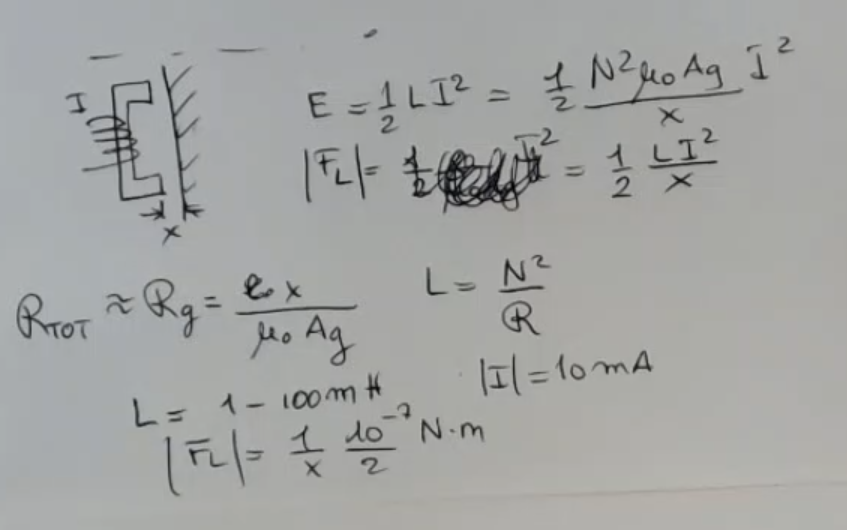 I
x
E = 1/2 LI² = 1/2 N²μ₀Ag/x I²
|F_L| = 1/2 I² = 1/2 LI²/x
R_TOT ≈ R_g = x/μ₀Ag
L = N²/R
L = 1 - 100mH
|I| = 10mA
|F_L| = 1/x 10⁻⁷/2 N·m